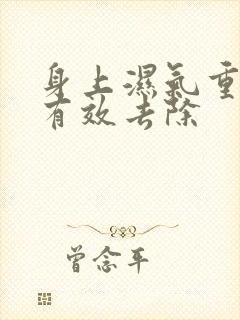 身上濕氣重
有效去除
曾念平